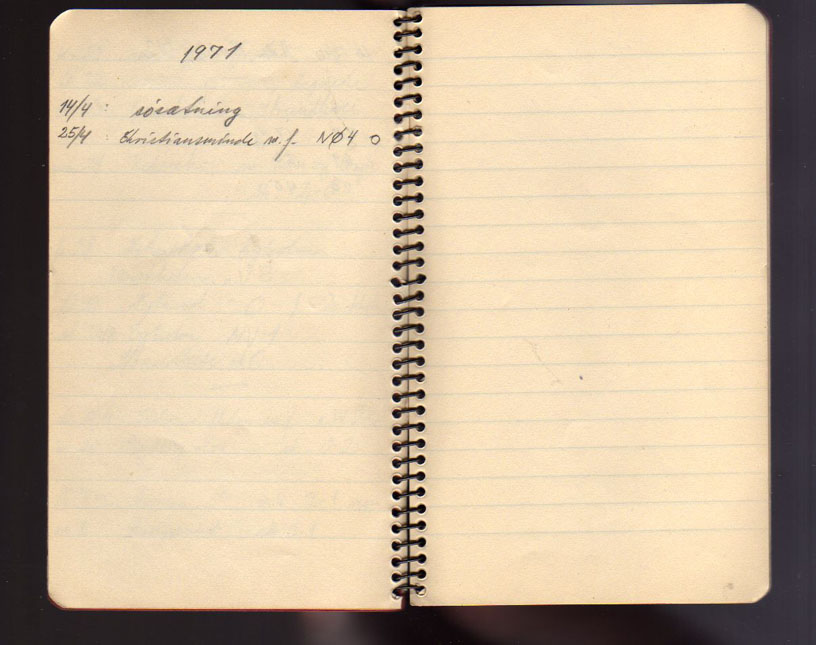 1971
14/4 : søsætning
25/4 : Christiansminde m.f. NØ4 o